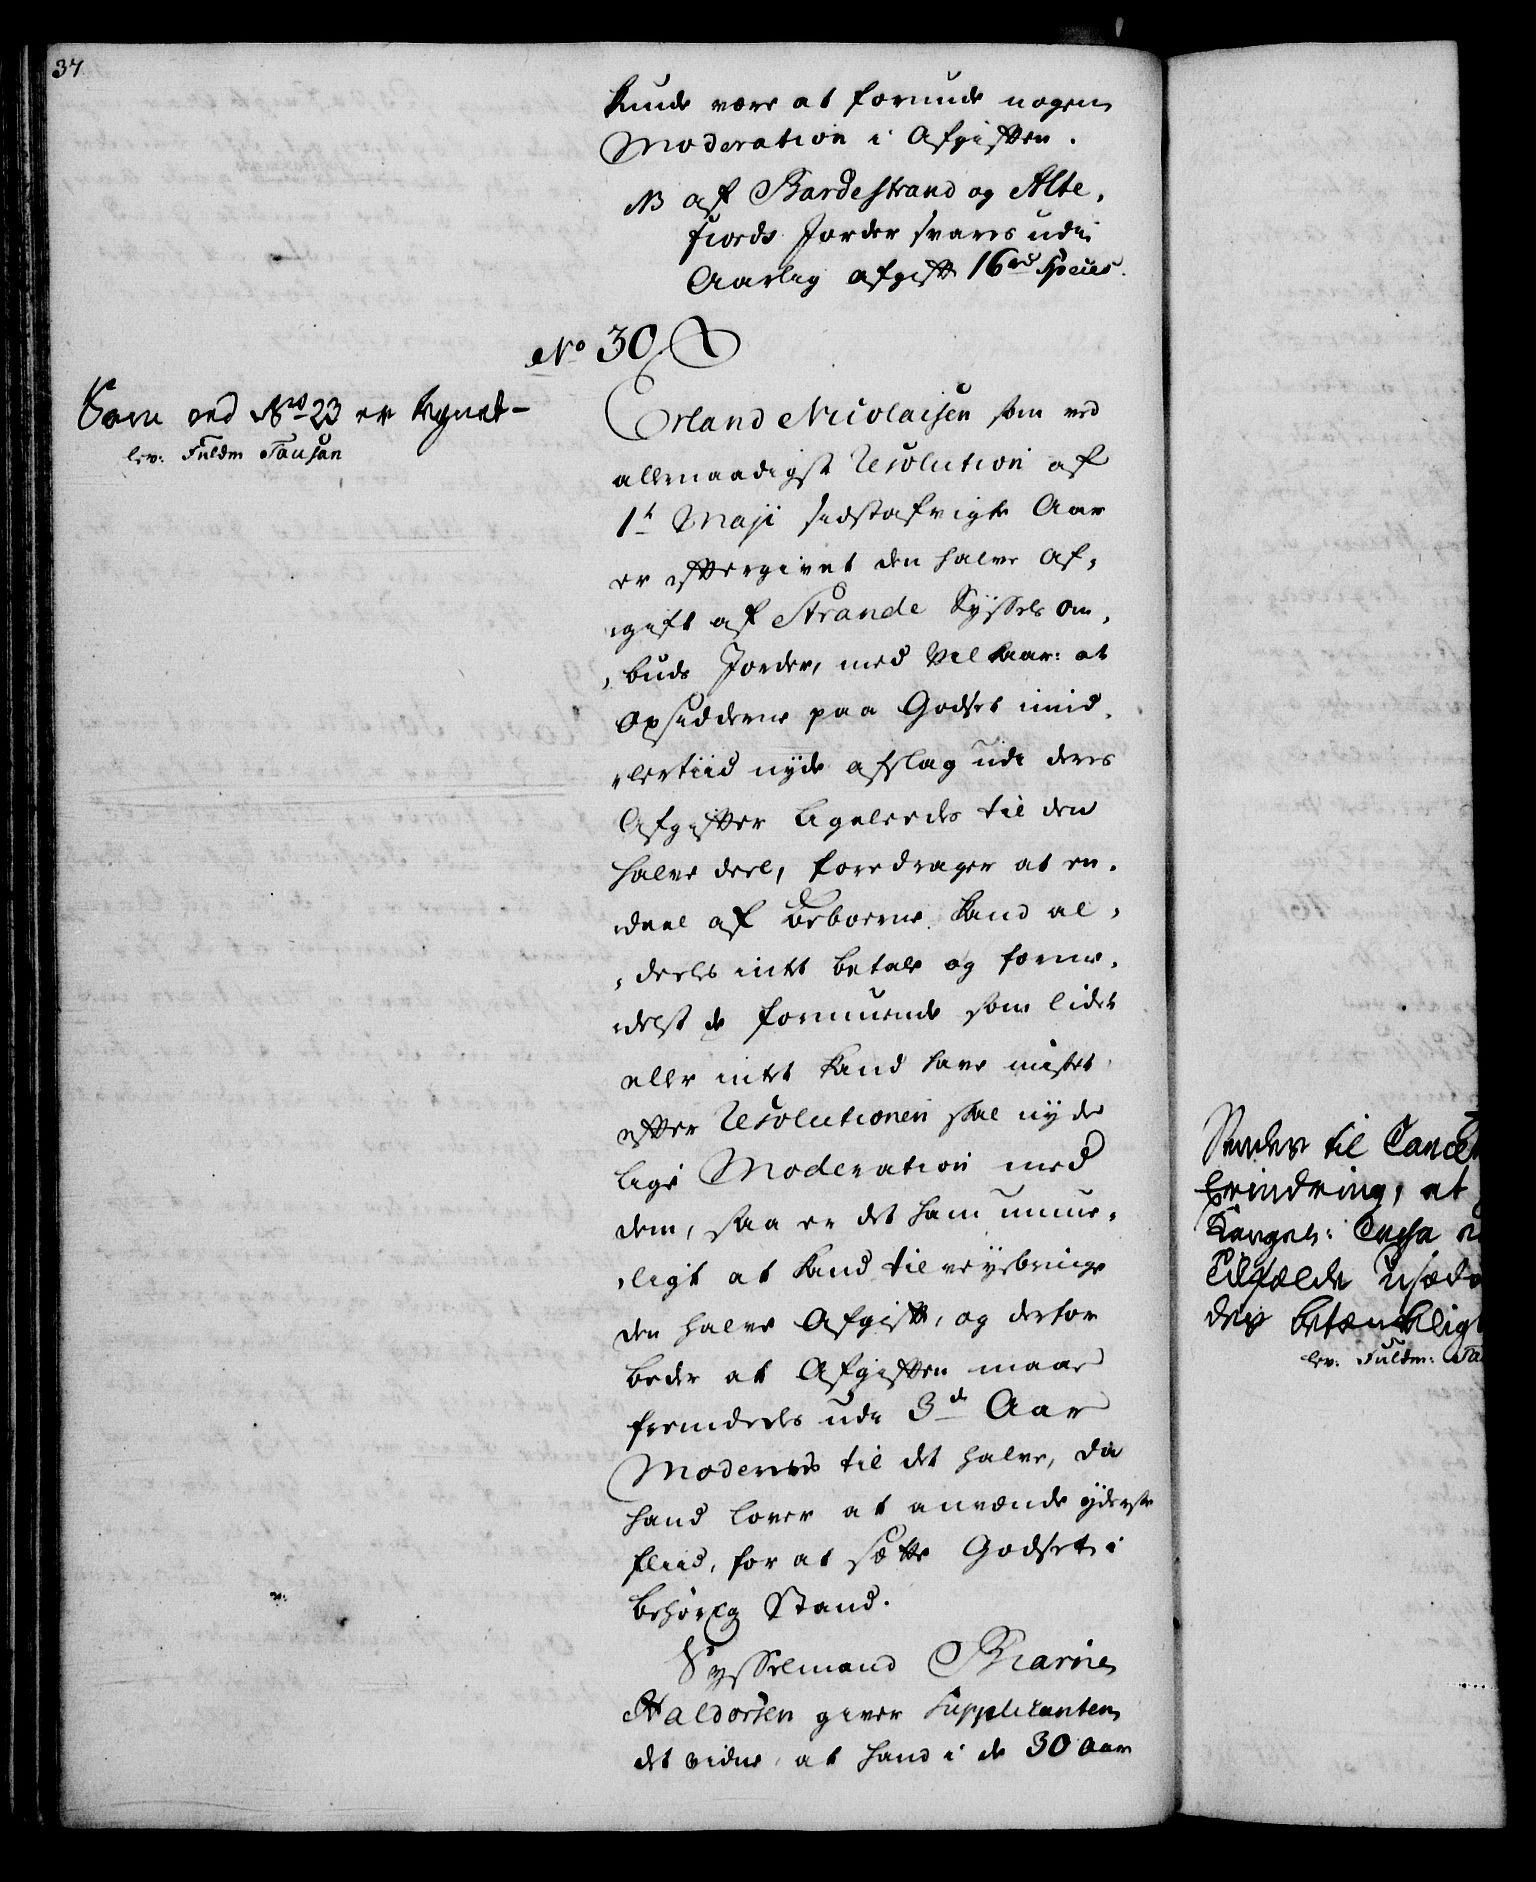 37
kunde være at forunde nogen
Moderation i Afgiften.
NB af Bardestrand og Alte,
fiords Jorder svares udi
Aarlig afgift 16 rd Species.
No 30
Som ved No 23 er tegnet-
lev: Fuldm Tausan
Erland Nicolaisen som ved
allernaadigst Resolution af
1t Maji sidstafvigte Aar
er eftergivet den halve Af,
gift af Strande Syssels om,
buds Jorder, med Vilkaar: at
Opsidderne paa Godset imid,
lertiid nyde afslag udi deres
Afgifter ligeleedes til den
halve deel, foredrager at en,
deel af Beboerne kand al,
deeles intet betale og forme,
delst de formuende som lidet
eller intet kand have mistet
efter Resolutionen skal nyde
lige Moderation med
dem, saa er det ham umue,
ligt at kand tilveyebringe
den halve Afgift, og derfor
beder at Afgiften maae
fremdeeles udi 3de Aar
Modereres til det halve, da
hand lover at anvende yderste
fliid, for at sætte Godset i
behørig Stand.
Sysselmand Biarne
Haldorsen giver Supplicanten
det vidne, at hand i de 30 Aar
Sendes til Cancel
Erindring, at
Konges: Cassa
Tilfælde
der betænkelig
lev: Fuldm: Ta